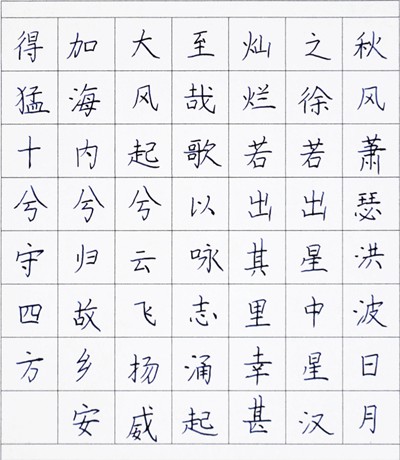 秋风萧瑟洪波日月
之徐若出星中星汉
灿烂若出其里幸甚
至哉歌以咏志涌起
大风起兮云飞扬威
加海内兮归故乡安
得猛十兮守四方